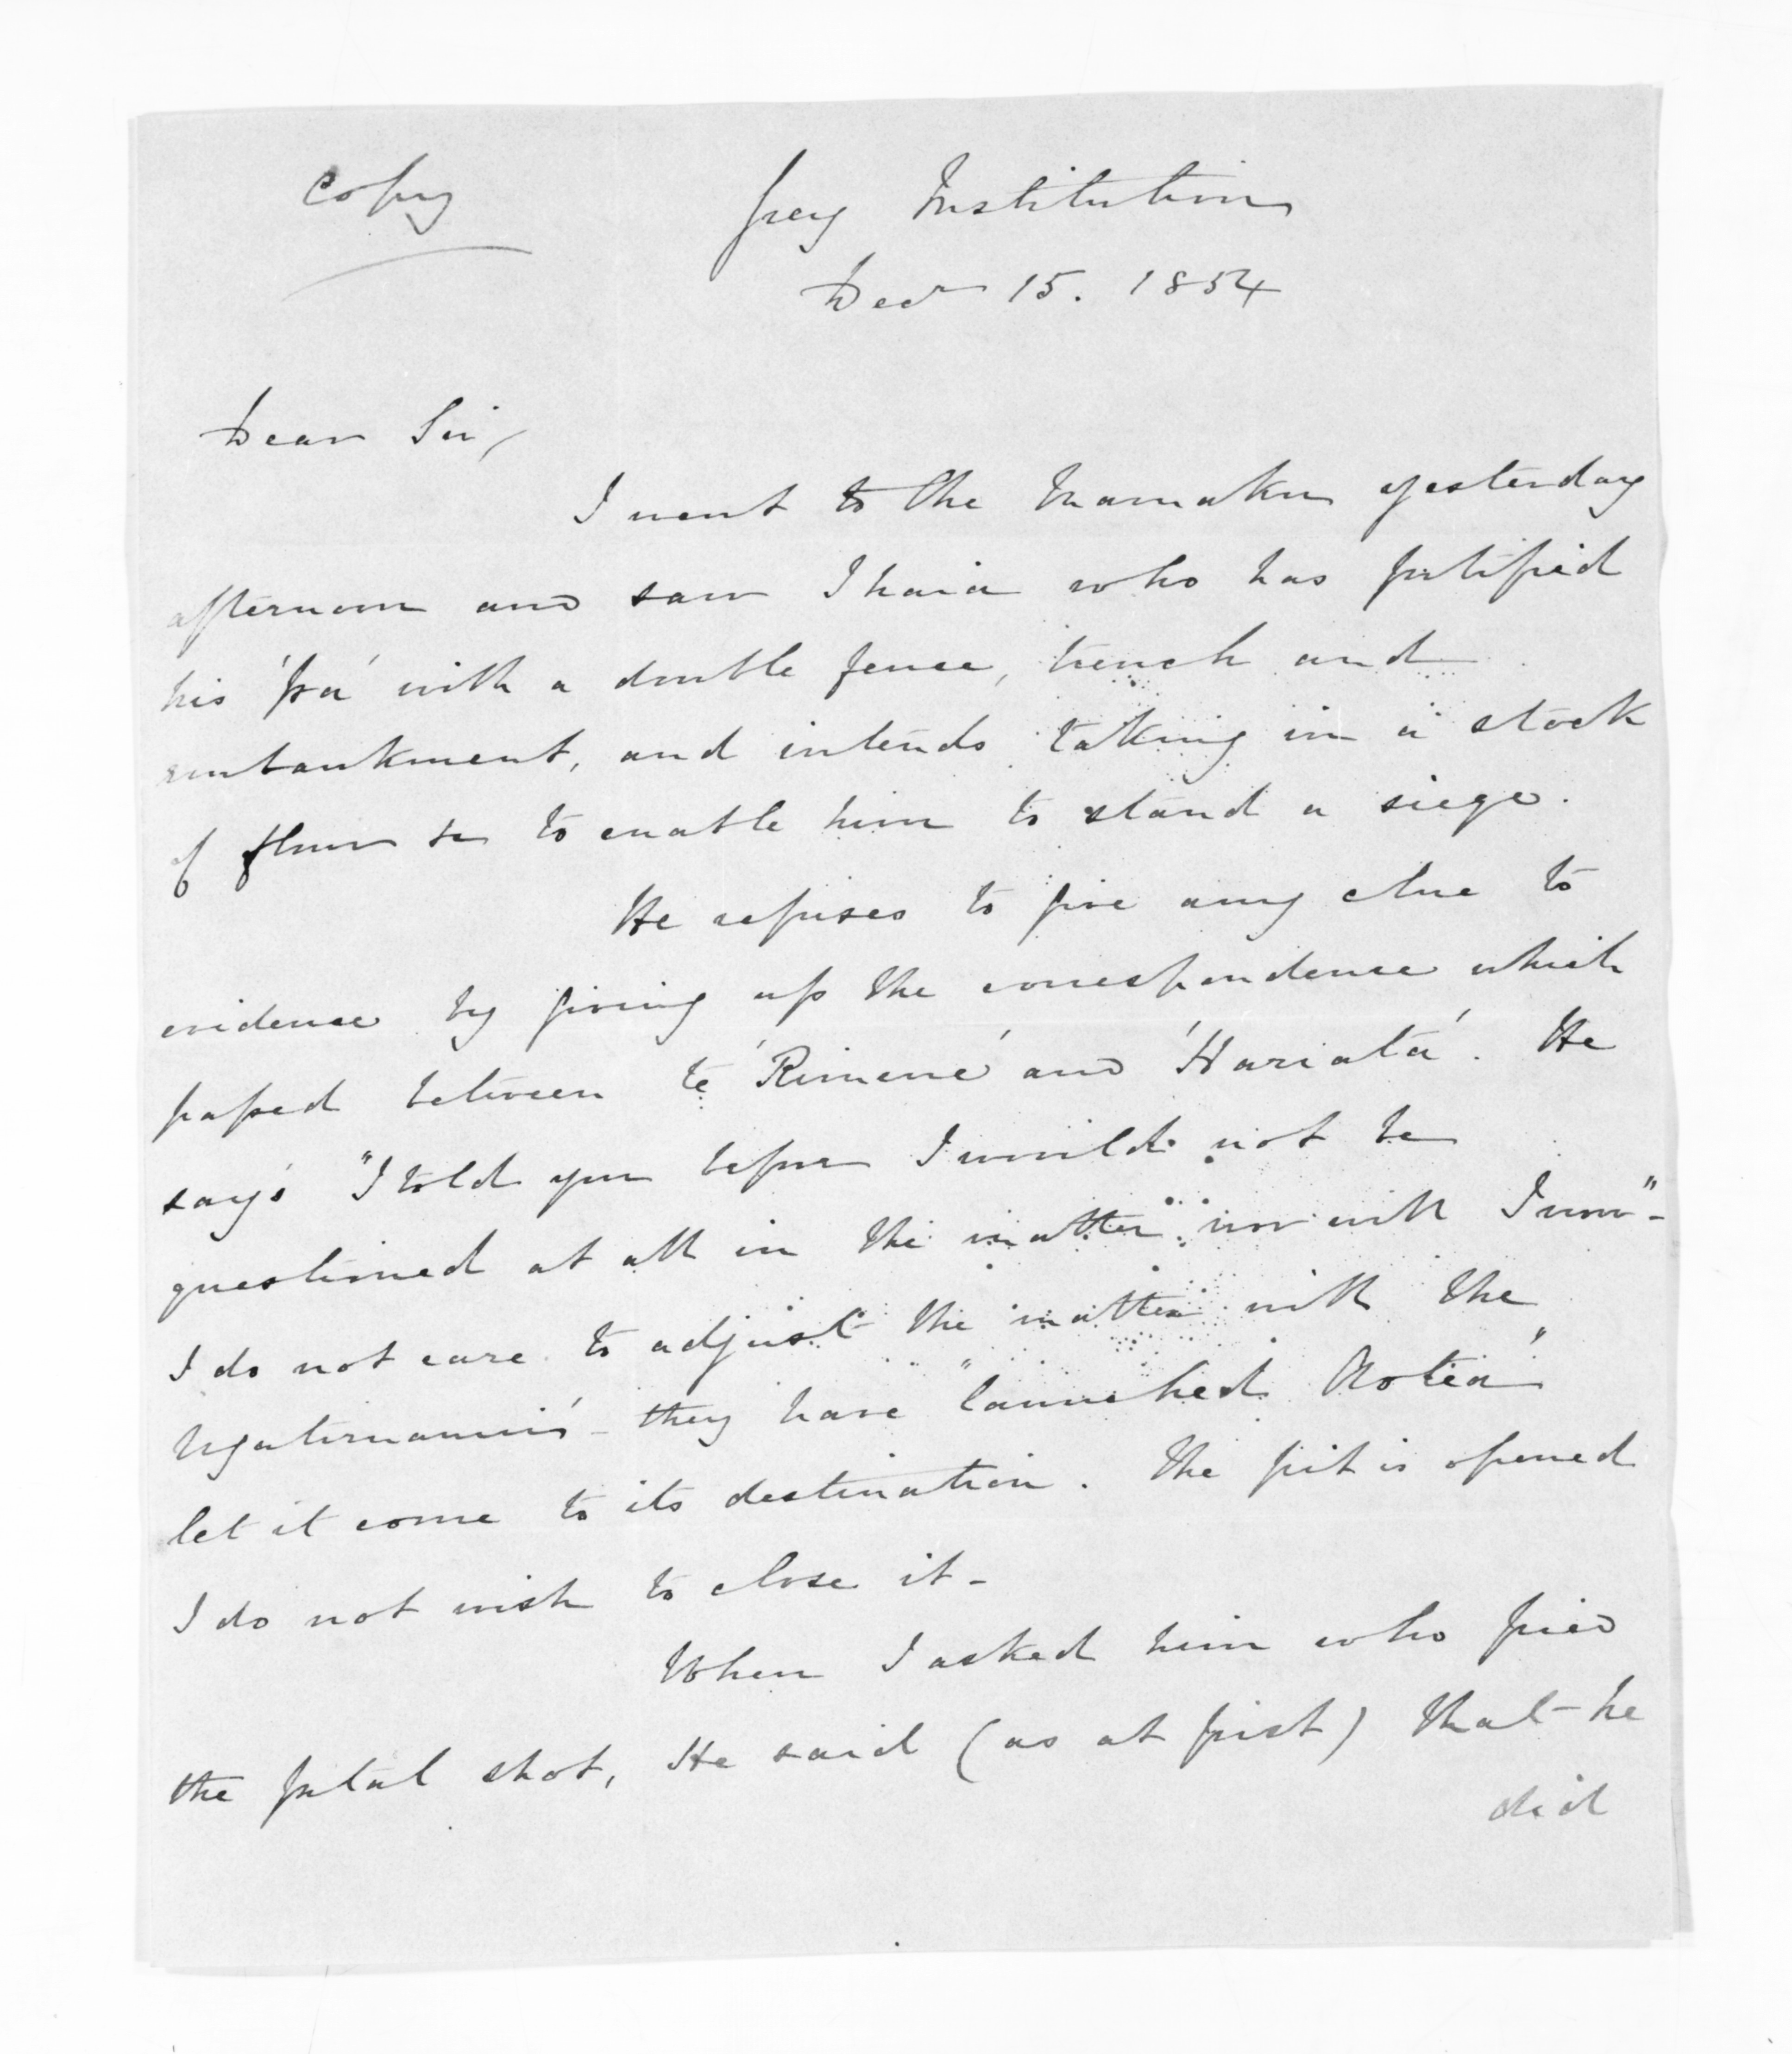 Copy
Grey Institution
Decr 15. 1854
Dear Sir,
I went to the Mamaku yesterday
afternoon and saw Ihaia who has fortified
his 'pa' with a double fence, trench and
embankment, and intends taking in a stock
of flour &c to enable him to stand a siege.
He refuses to give any clue to
evidence by giving up the correspondence which
passed between te 'Rimene' and 'Hariata'. He
says "I told you before I would not be
questioned at all in the matter nor will I now" -
I do not care to adjust the matter with the
- they have "launched Aotea"
let it come to its destination. The pit is opened
I do not wish to close it -
When I asked him who fired
the fatal shot, He said (as at first) that he
did